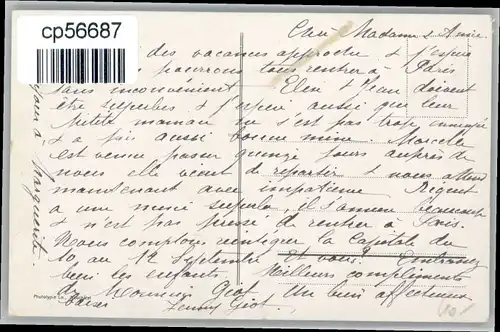 cp56687
Chère Madame & Amie
des vacances approche & j'espère
pourrons tous rentrer à Paris
sans inconvénient Elen & Jean doivent
être superbes & j'espère aussi que leur
petite maman ne s'est pas trop ennuyée
& a pris aussi bonne mine. Marcelle
est venue passer quinze jours auprès de
nous elle vient de repartir & nous attend
maintenant avec impatience
a une mine superbe, il s'amuse beaucoup
& n'est pas pressé de rentrer à Paris.
Nous comptons réintégrer la Capitale du
10 au 12 Septembre Et vous? Embrassez
bien les enfants Meilleurs compliments
de Monsieur Giot Un bien affectueux
baiser Giot.
à Marguerite
Phototypie Co.,